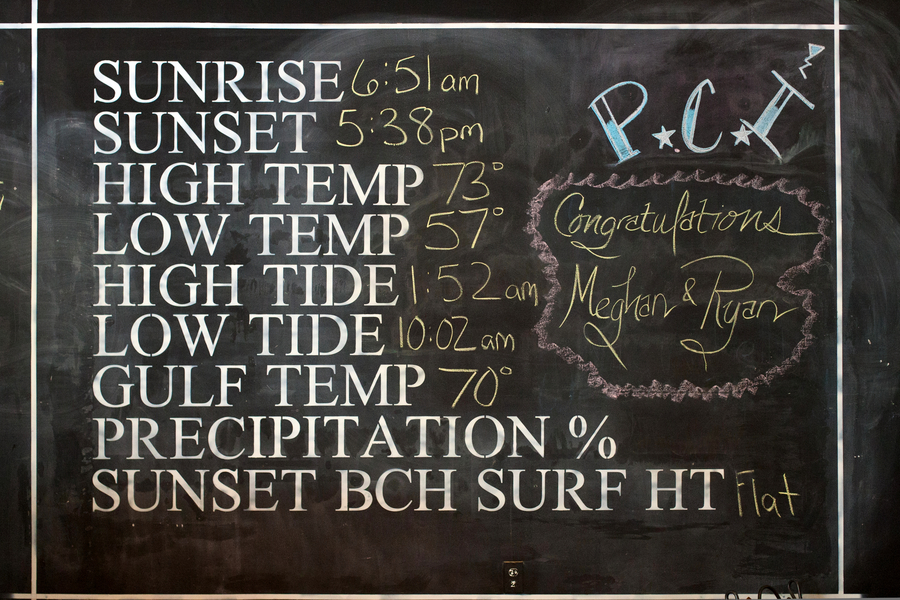 SUNRISE 6:51 am
SUNSET 5:38 pm
HIGH TEMP 73°
LOW TEMP 57°
HIGH TIDE 1:52 am
LOW TIDE 10:02 am
GULF TEMP 70°
PRECIPITATION %
SUNSET BCH SURF HT Flat
P.C.I
Congratulations
Meghan & Ryan